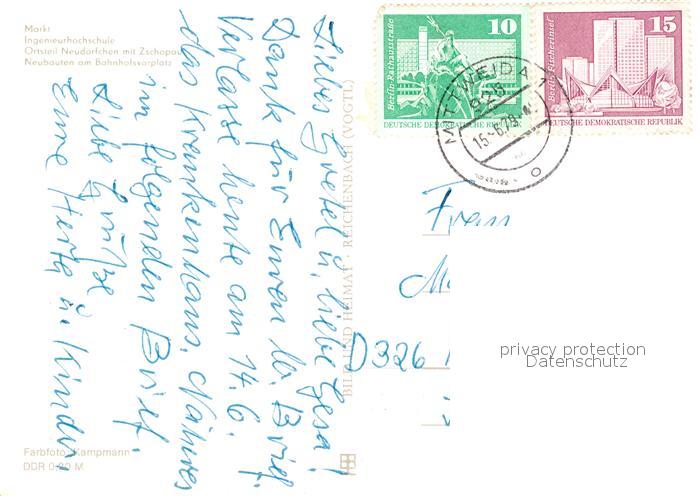 Markt
Ingenieurhochschule
Ortsteil Neudörfchen mit Zschopau
Neubauten am Bahnhofsvorplatz
Liebe Gretel u. liebe Gesa!
Dank für Euren lb. Brief.
Verlasse heute am 14.6.
das Krankenhaus. Näheres
im folgenden Brief.
Liebe Grüße
Eure Herta u. Kinder.
BILD UND HEIMAT REICHENBACH (VOGTL)
Farbfoto: Kampmann
DDR 0,20 M
10
Berlin-Rathausstraße
DEUTSCHE DEMOKRATISCHE REPUBLIK
15
Berlin-Fischerinsel
DEUTSCHE DEMOKRATISCHE REPUBLIK
MITTWEIDA 1
925
15.-6.79
Frau
D326
privacy protection
Datenschutz